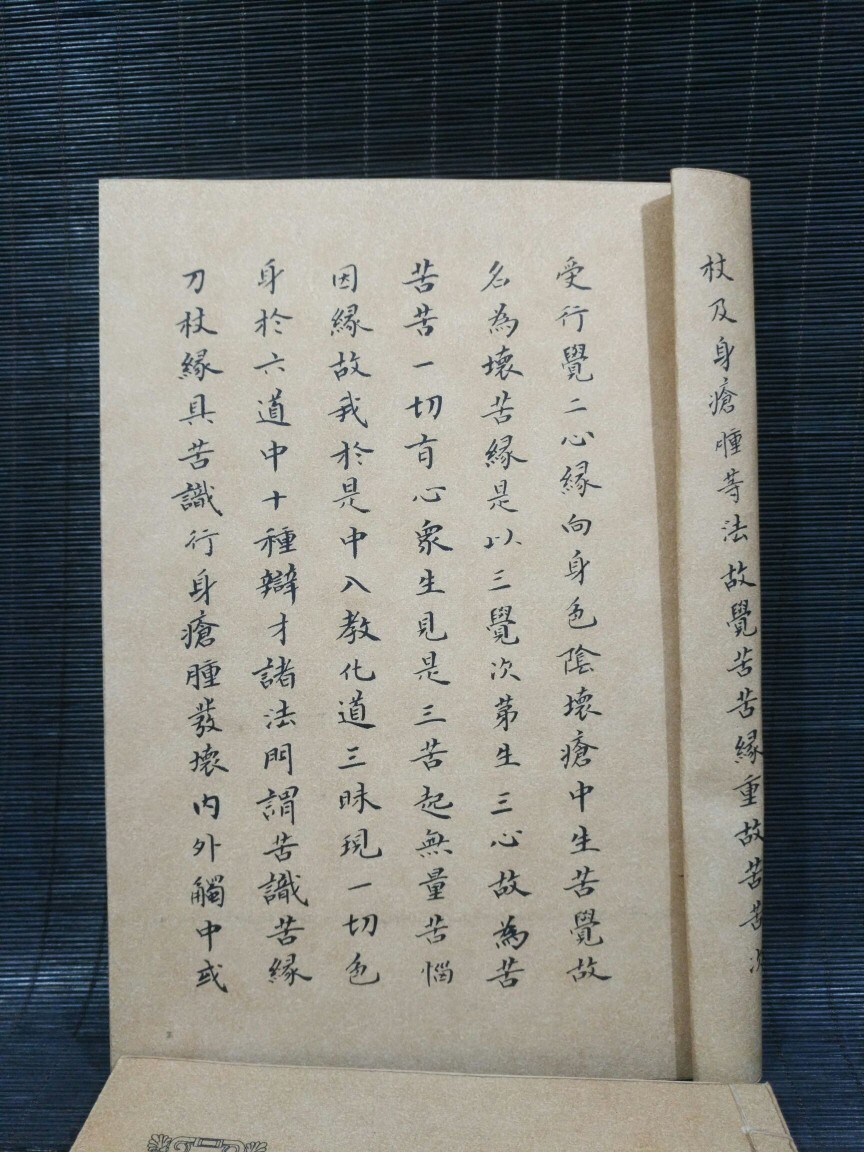 杖及身瘡腫等法故覺苦苦縁重故苦苦次
受行覺二心縁向身色陰壞瘡中生苦覺故
名為壞苦縁是以三覺次苐生三心故為苦
苦苦一切有心衆生見是三苦起無量苦惱
因縁故我於是中入教化道三昧現一切色
身於六道中十種辯才諸法門謂苦識苦縁
刀杖縁具苦識行身瘡腫發壞内外觸中或